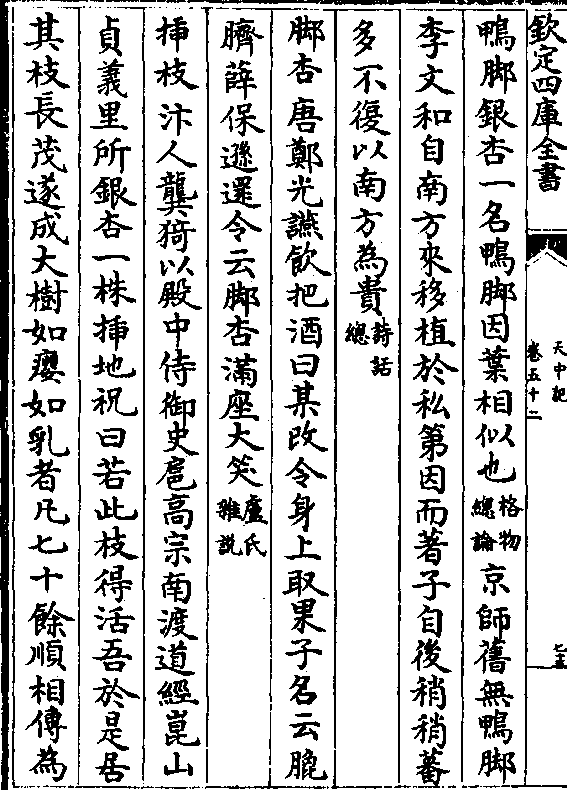 欽定四庫全書
天中記
卷五十二
七五
鴨脚銀杏一名鴨脚因葉相似也格物總論京師舊無鴨脚
李文和自南方來移植於私第因而著子自後稍稍蕃
多不復以南方為貴詩話總
脚杏唐鄭光讌飲把酒曰某改令身上取果子名云膍
臍薛保遜還令云脚杏滿座大笑盧氏雜説
挿枝汴人龔猗以殿中侍御史扈高宗南渡道經崑山
貞義里所銀杏一株挿地祝曰若此枝得活吾於是居
其枝長茂遂成大樹如癭如乳者凡七十餘順相傳為